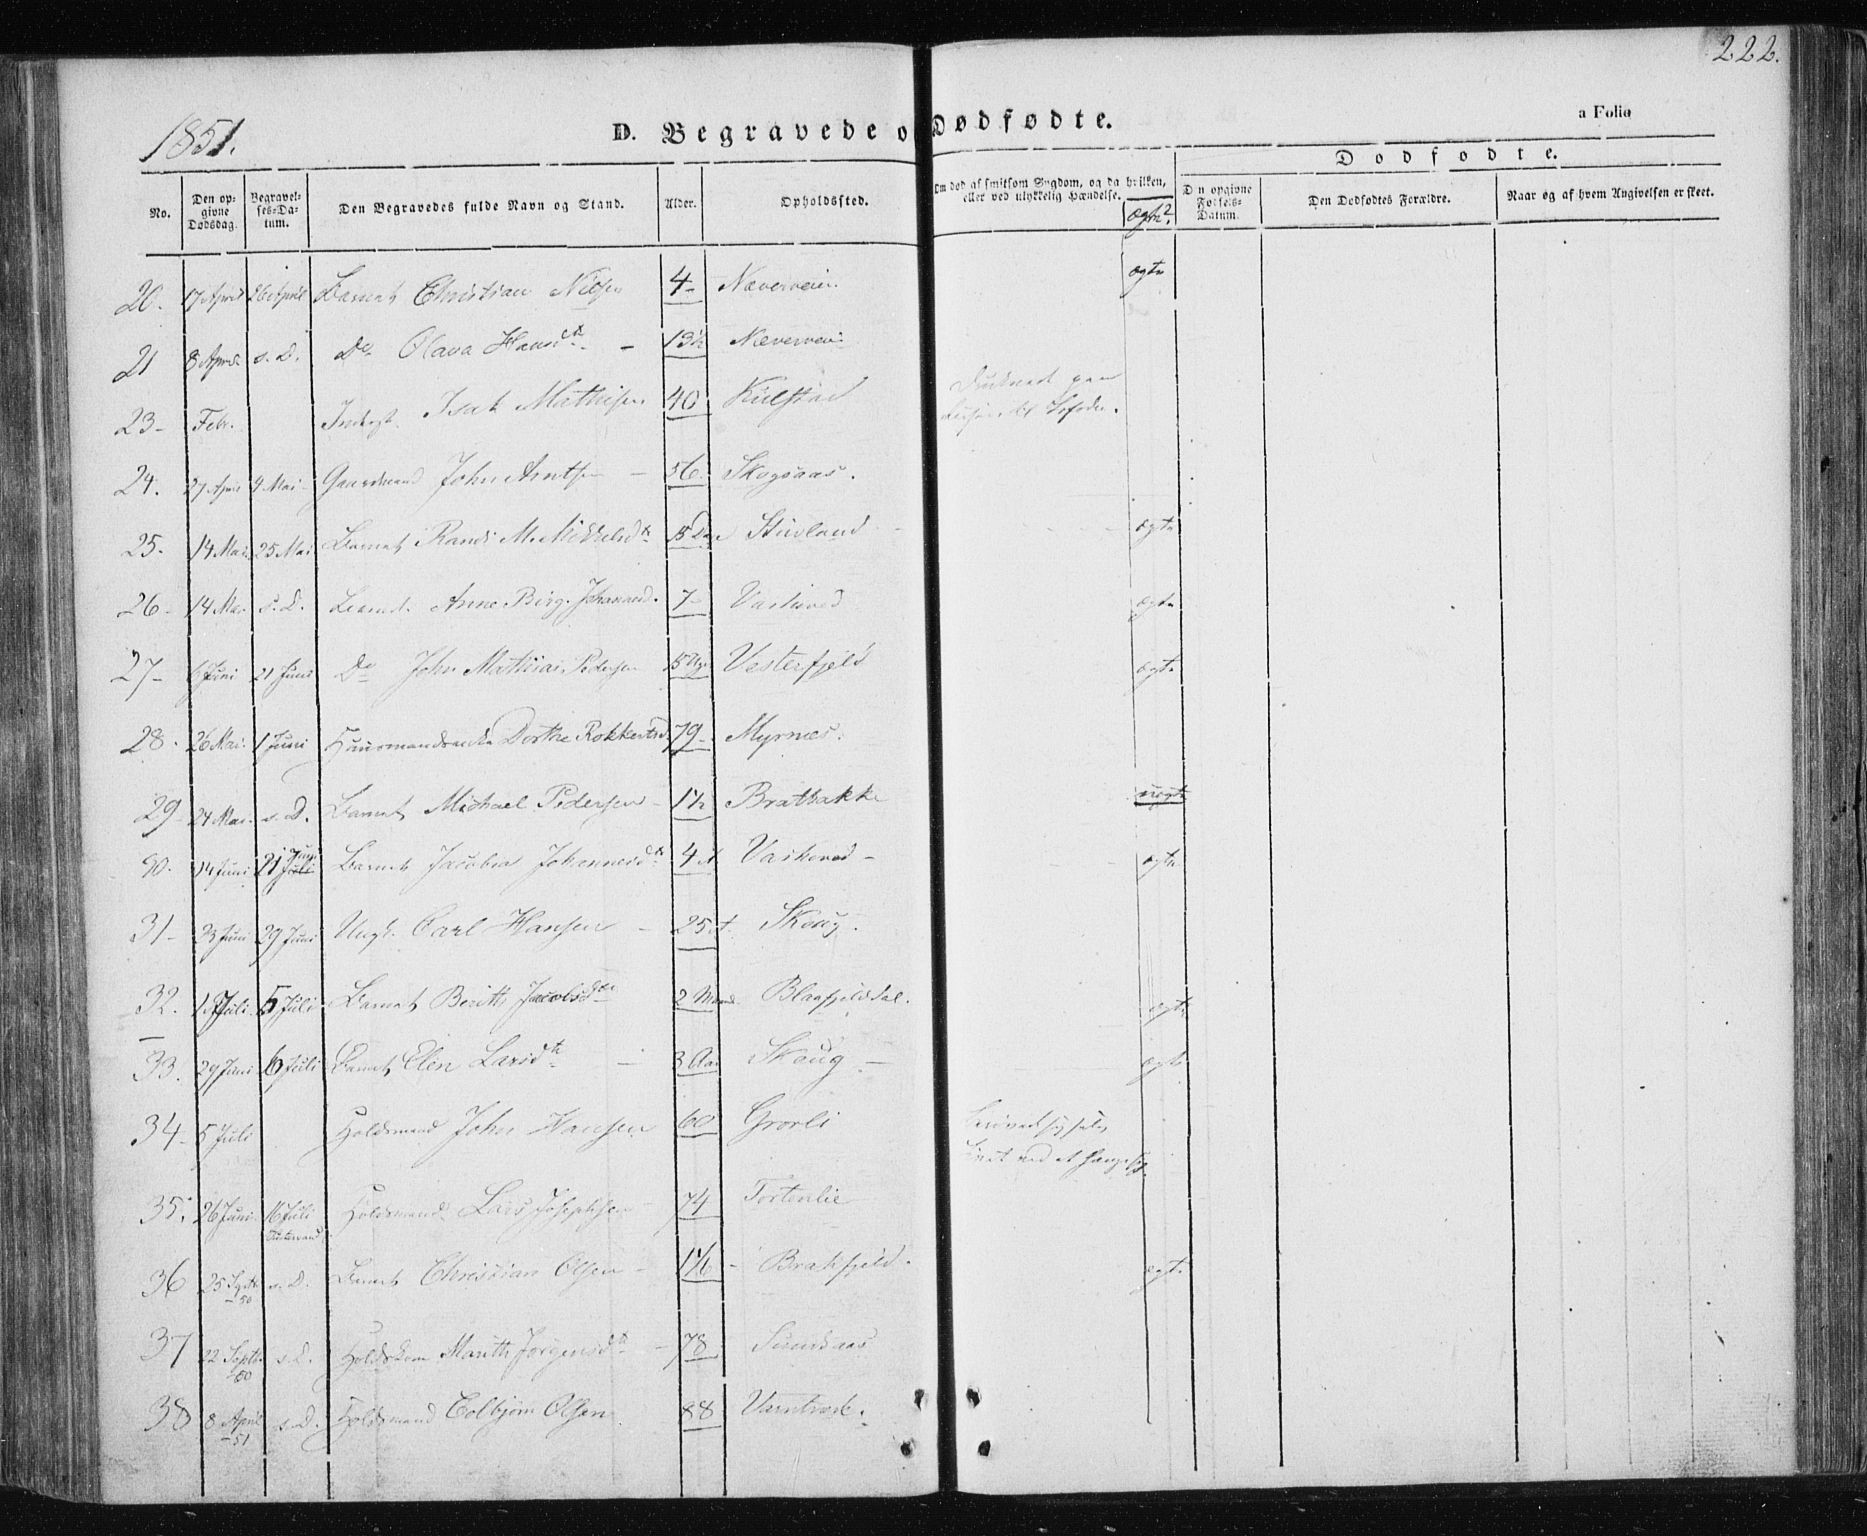 222.
1851.
D. Begravede o Dødfødte.
a Folio
No.
Den opgivne Dødsdag.
Begravelses-Datum.
Den Begravedes fulde Navn og Stand.
Alder.
Opholdssted.
Om død af smitsom Sygdom, og da hvilken, eller ved ulykkelig Hændelse.
ægte?
Dødfødte.
Den opgivne Fødsels-Datum.
Den Dødfødtes Forældre.
Naar og af hvem Angivelsen er skeet.
20. 17 April 26 April Barnet Christian Nilsen 4 - Næverveien ægte
21 8 April s. D. Do Olava Hansdtr - 13½ Næverveien
23 - Febr. Inderst. Isak Mathisen 40 Kulstad Druknet paa Reisen til Lofoden.
24. 27 April 4 Mai - Gaardmand John Arntsen - 56. Skogsaas.
25. 14 Mai 25 Mai Barnet Randi M. Mikkelsdtr 15 Dage Stuvland - ægte
26 - 14 Mai s. D. Barnet Anne Birg. Johannesd. 7 - ægte
27 - 6 Juni 21 Juni Do John Mathias Pedersen 15 Vesterfjeld ægte
28. 26 Mai. 1 Juni Huusmandsenke Dorthe Rokkertsd. 79 - Myrnes.
29 24 Mai. s. D. Barnet Michael Pedersen - 1½ Bratbakke uægte
90. 14 Juni 21 Juni Barnet Jacobia Johannesdtr 4 A - ægte
31 - 23 Juni 29 Juni Ungk. Carl Hansen - 25 A. Skoug.
32. 1 Juli 5 Juli Barnet Berith Jacobsdtr 2 Maand. Blaafjelddal. ægte
33. 29 Juni 6 Juli Barnet Elen Larsdtr - 3 Aar Skoug - ægte
34 - 5 Juli Holdsmand John Hansen 60 Grovli ved at hænge sig.
35. 26 Juni 16 Juli Holdsmand Lars Josephsen 74 Tortenlie
36 25 Septbr -50 s. D. Barnet Christian Olsen - 1 1/6 - Brakfjeld. ægte
37 22 Septbr -50 s. D. Holdskone Marith Jørgensdtr - 78
38 8 April -51 s. D. Holdsmand Colbjørn Olsen 88 Varntræsk.